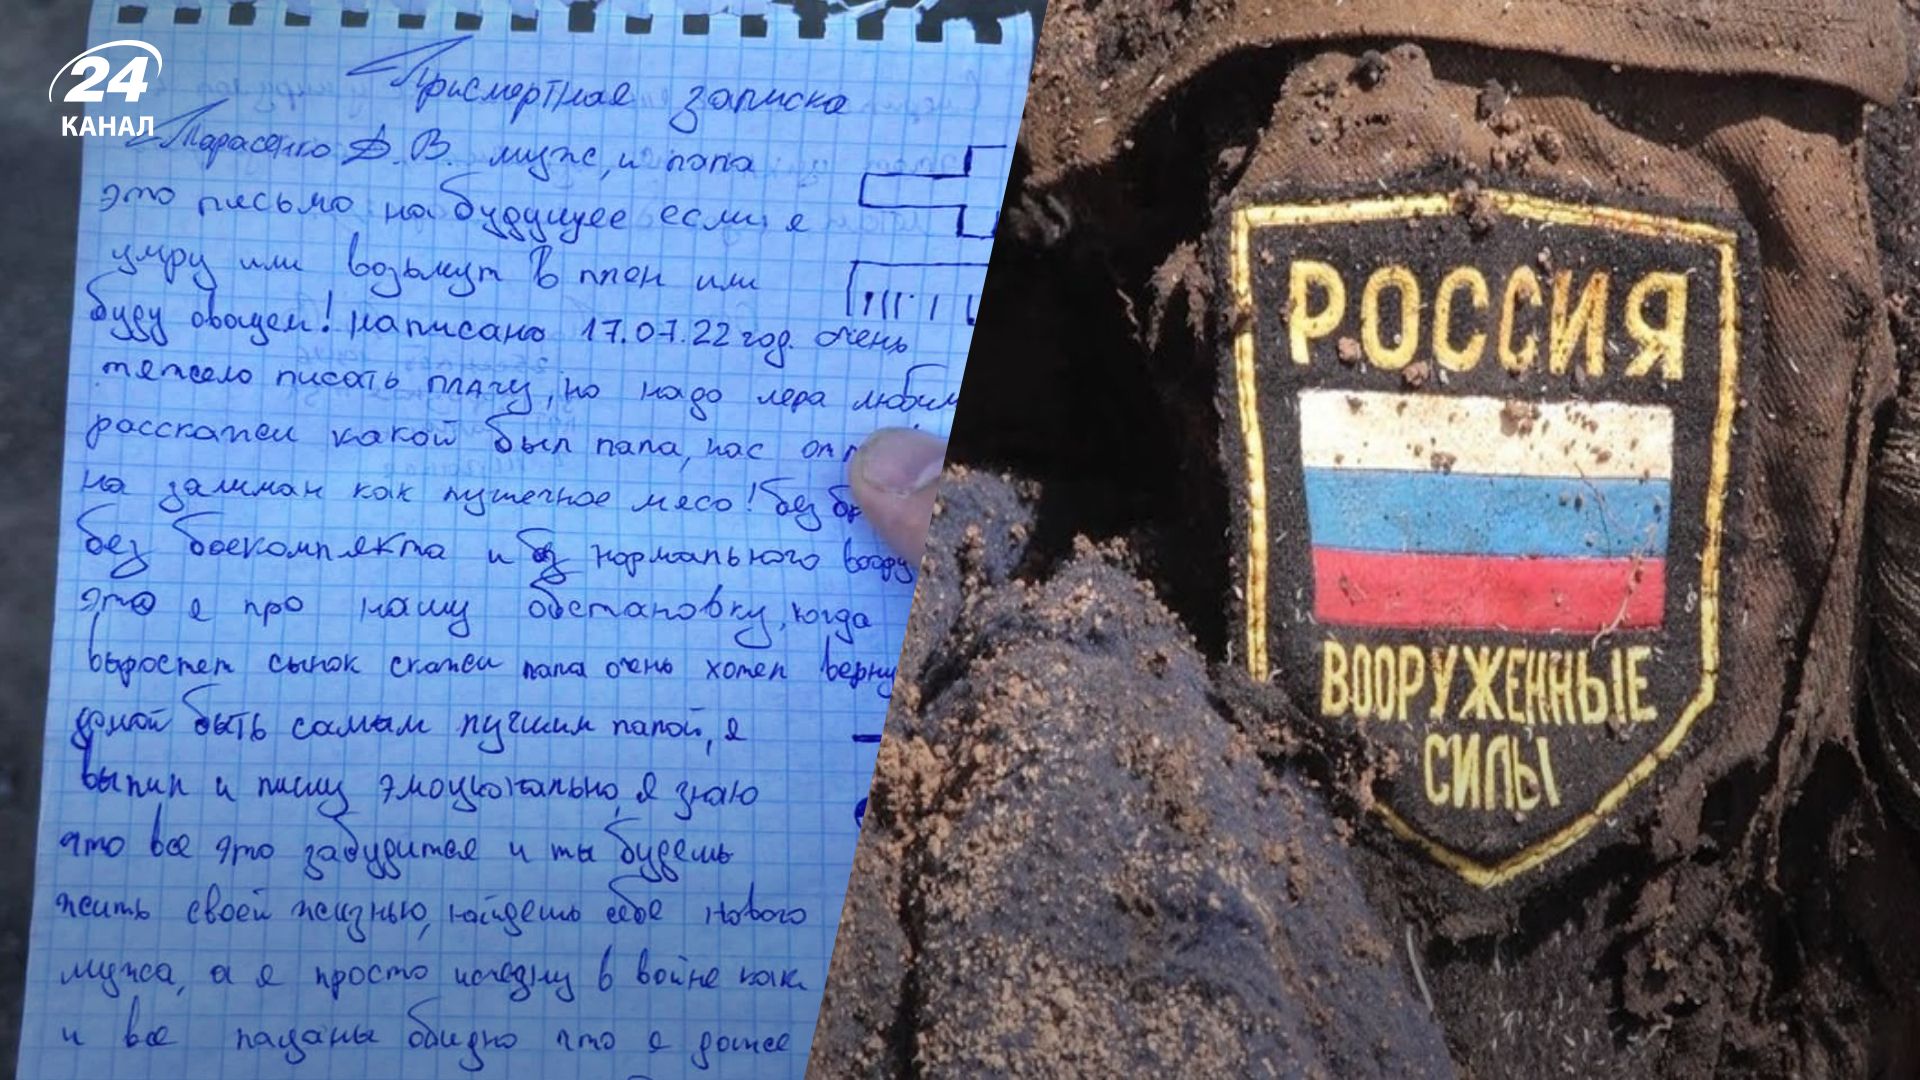 24
КАНАЛ
Присмертная записка
Тарасенко Д. В. муж, и папа
это письмо на будущее если я
умру или возьмут в плен или
буду овощем! написано 17.07.22 год. очень
тяжело писать плачу, но надо лера любим
расскажеи какой был папа, нас отп
на залман как пушечное мясо! без бр
без боекомплекта и без нормального воору
это я про нашу обстановку, когда
выростет сынок скажеи папа очень хотел верну
домой быть самым лучшим папой, я
выпил и пишу эмоционально, я знаю
что все это забудится и ты будешь
жить своей жизнью, найдешь себе нового
мужа, а я просто исчезну в войне как
и все пацаны обидно что я даже
РОССИЯ
ВООРУЖЕННЫЕ
СИЛЫ